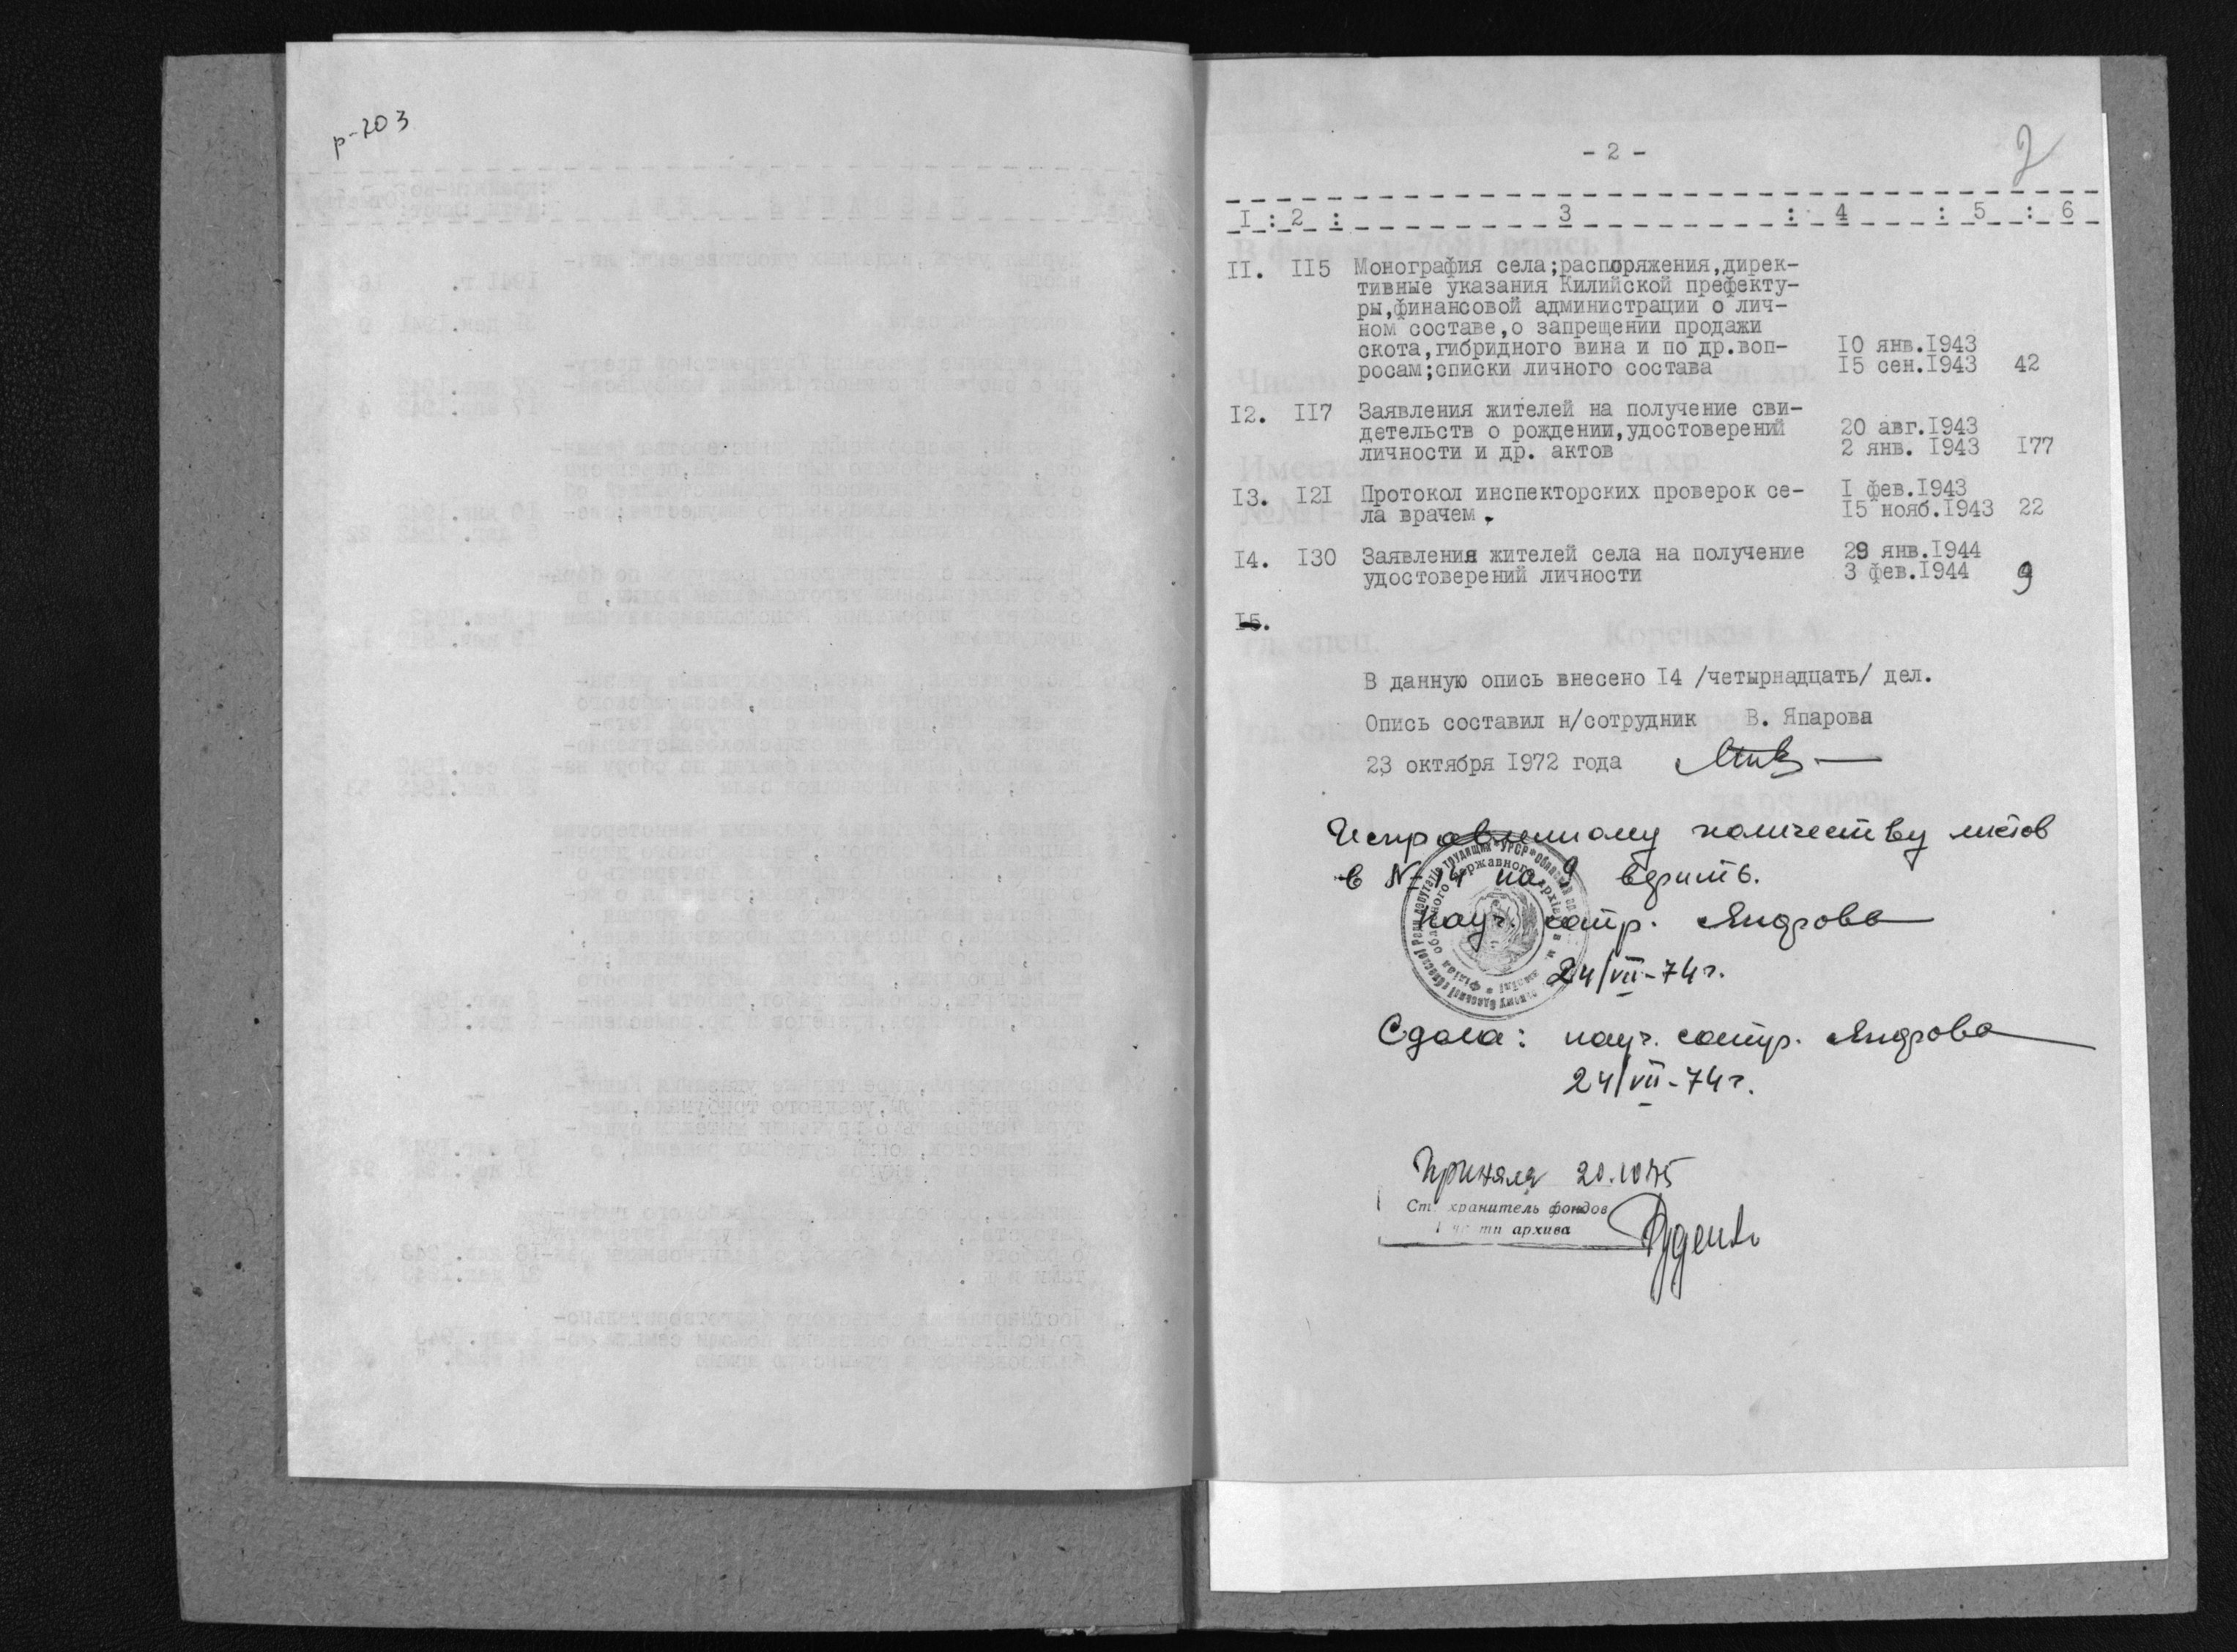 р-203
- 2 -
2
I : 2 : 3 : 4 : 5 : 6
II. II5 Монография села;распоряжения,дирек-
тивные указания Килийской префекту-
ры,финансовой администрации о лич-
ном составе,о запрещении продажи
скота,гибридного вина и по др.воп- I0 янв.I943
росам;списки личного состава I5 сен.I943 42
I2. II7 Заявления жителей на получение сви-
детельств о рождении,удостоверений 20 авг.I943
личности и др. актов 2 янв. I943 I77
I3. I2I Протокол инспекторских проверок се- I фев.I943
ла врачем. I5 нояб.I943 22
I4. I30 Заявления жителей села на получение 29 янв.I944
удостоверений личности 3 фев.I944 9
I5.
В данную опись внесено I4 /четырнадцать/ дел.
Опись составил н/сотрудник В. Япарова
23 октября I972 года
Исправленному количеству листов
в № 14 на 9 верить.
науч. сотр.
24/VII-74г.
Сдала: науч. сотр.
24/VII-74г.
Приняла 20.10.75
Ст. хранитель фондов
архива